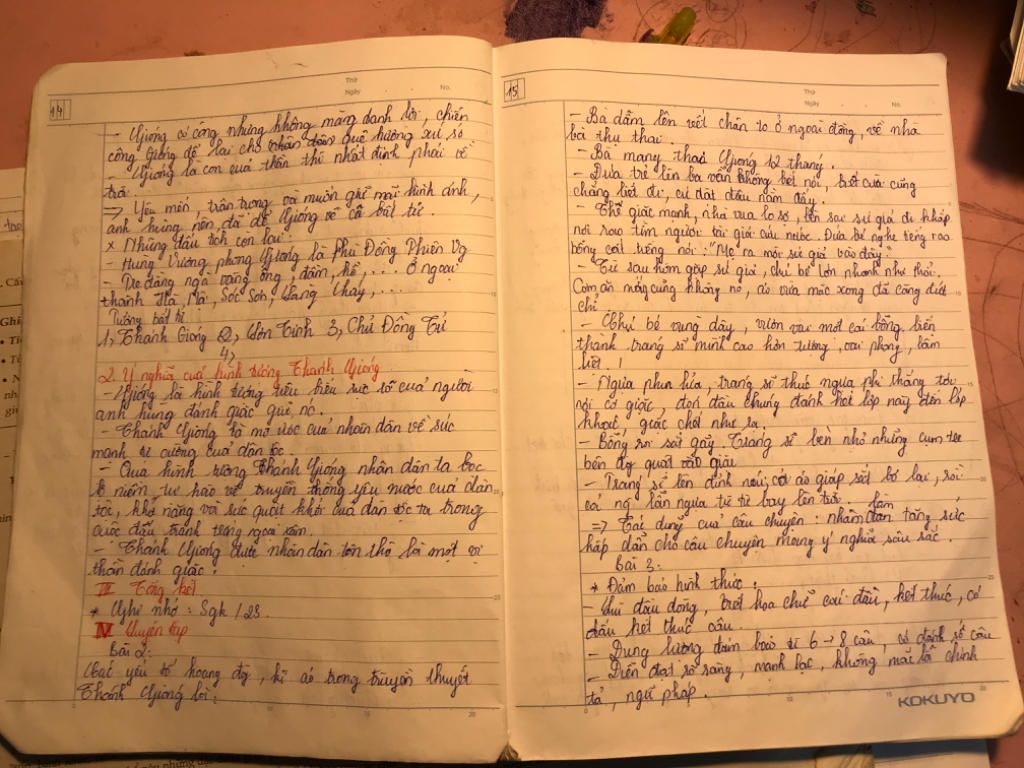 14
Thứ
Ngày
No.
- Gióng có công nhưng không màng danh lợi, chiến
công Gióng để lại cho nhân dân quê hương xứ sở
- Gióng là con của thần thì nhất định phải về
trời.
=> Yêu mến, trân trọng và muốn giữ mãi hình ảnh,
anh hùng nên đã để Gióng về cõi bất tử.
x Những dấu tích còn lại:
- Hùng Vương phong Gióng là Phù Đổng Thiên Vg
- Tre đằng ngà vàng óng, đầm, hồ, ... ở ngoại
thành Hà Nội, Sóc Sơn, Làng Cháy, ...
Tướng bất tử
1, Thánh Gióng 2, Sơn Tinh 3, Chử Đồng Tử
4,
2. Ý nghĩa của hình tượng Thánh Gióng
- Gióng là hình tượng tiêu biểu rực rỡ của người
anh hùng đánh giặc giữ nc.
- Thánh Gióng là mơ ước của nhân dân về sức
mạnh tự cường của dân tộc.
- Qua hình tượng Thánh Gióng nhân dân ta bộc
lộ niềm tự hào về truyền thống yêu nước của dân
tộc, khả năng và sức quật khởi của dân tộc ta trong
cuộc đấu tranh chống ngoại xâm.
- Thánh Gióng được nhân dân tôn thờ là một vị
thần đánh giặc.
III Tổng kết
* Ghi nhớ: Sgk / 23.
IV Luyện tập
Bài 2:
Các yếu tố hoang đg, kì ảo trong truyền thuyết
Thánh Gióng là:
15
Thứ
Ngày
No.
- Bà dẫm lên vết chân to ở ngoài đồng, về nhà
bà thụ thai.
- Bà mang thai Gióng 12 tháng.
- Đứa trẻ lên ba vẫn không biết nói, biết cười cũng
chẳng biết đi, cứ đặt đâu nằm đấy.
- Thế giặc mạnh, nhà vua lo sợ, bèn sai sứ giả đi khắp
nơi rao tìm người tài giỏi cứu nước. Đứa bé nghe tiếng rao
bỗng cất tiếng nói: "Mẹ ra mời sứ giả vào đây."
- Từ sau hôm gặp sứ giả, chú bé lớn nhanh như thổi.
Cơm ăn mấy cũng không no, áo vừa mặc xong đã căng đứt
chỉ
- Chú bé vùng dậy, vươn vai một cái bỗng biến
thành tráng sĩ mình cao hơn trượng, oai phong, lẫm
liệt !
- Ngựa phun lửa, tráng sĩ thúc ngựa phi thẳng tới
nơi có giặc, đón đầu chúng đánh hết lớp này đến lớp
khác, giặc chết như rạ.
- Bỗng roi sắt gãy. Tráng sĩ bèn nhổ những cụm tre
bên đg quật vào giặc
- Tráng sĩ lên đỉnh núi, cởi áo giáp sắt bỏ lại, rồi
cả ng lẫn ngựa từ từ bay lên trời.
=> Tác dụng của câu chuyện: nhằm làm tăng sức
hấp dẫn cho câu chuyện mang ý nghĩa sâu sắc.
Bài 3:
* Đảm bảo hình thức:
- Lùi đầu dòng, viết hoa chữ cái đầu, kết thúc, có
dấu kết thúc câu.
- Dung lượng đảm bảo từ 6 -> 8 câu, có đánh số câu
- Diễn đạt rõ ràng, mạch lạc, không mắc lỗi chính
tả, ngữ pháp.
KOKUYO